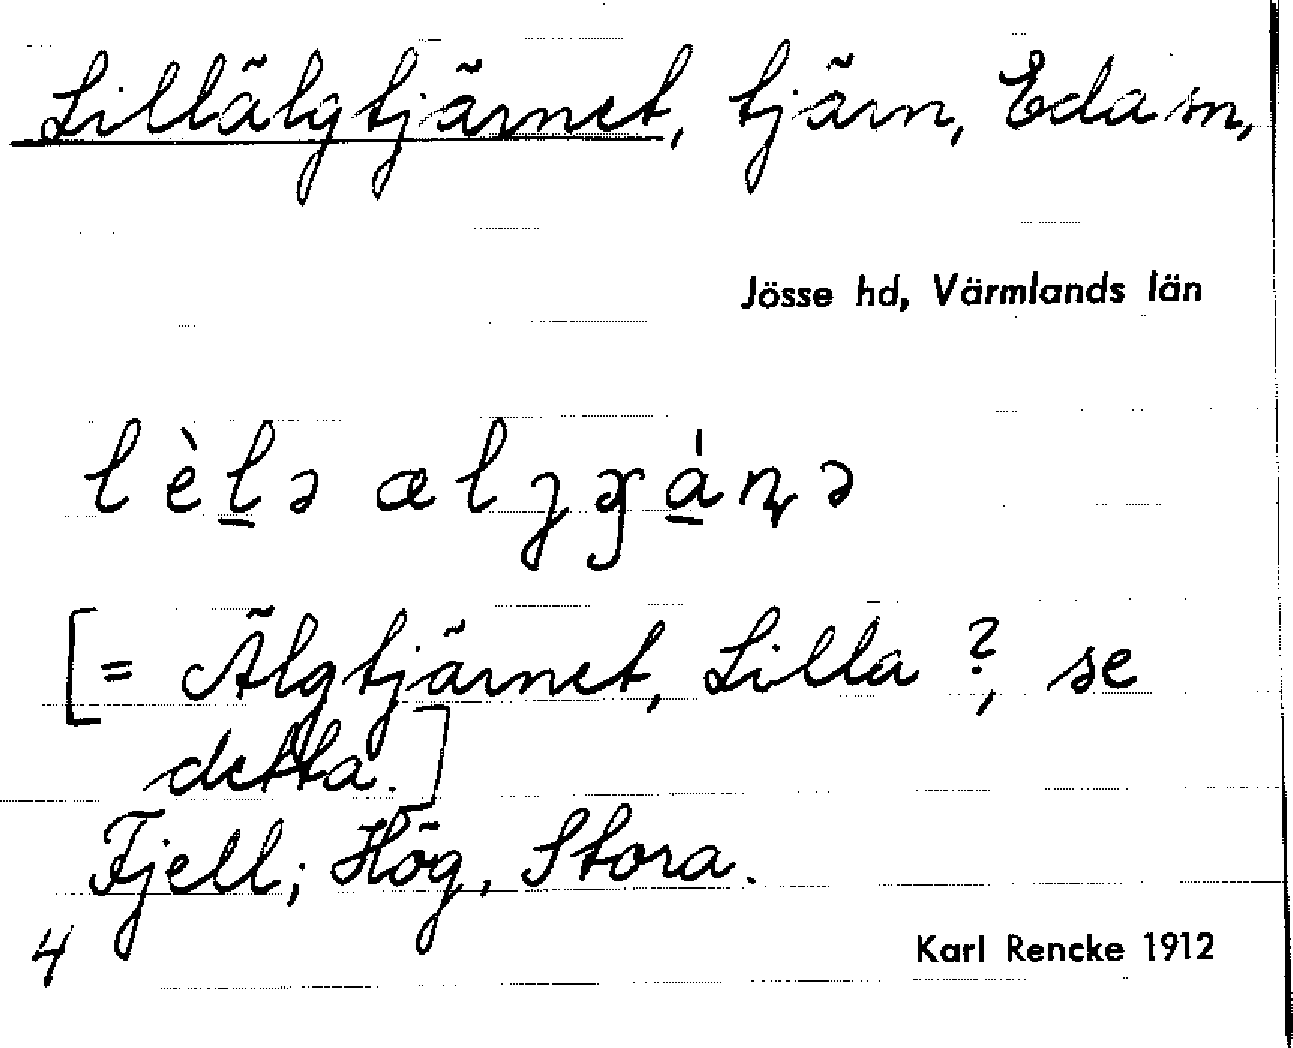 Lillälgtjärnet, tjärn, Eda sn,
Jösse hd, Värmlands län
lèl̲ə ælʒɣá̲ɳə
[= Älgtjärnet, Lilla ?, se
detta.]
Fjell; Hög, Stora.
4
Karl Rencke 1912